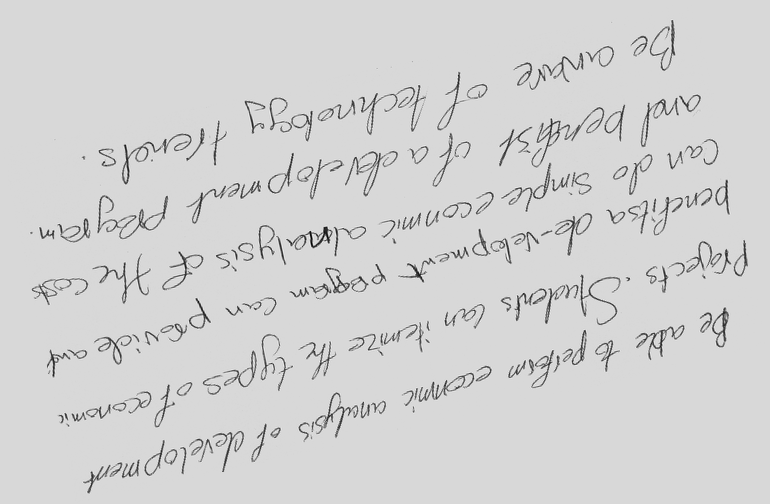 Be able to perform econmic analysis of development
Projects. Students can itemize the types of economic
benefitsa de-velopment program can provide and
can do simple econmic analysis of the costs
and benefist of a development program.
Be aware of technology trends.